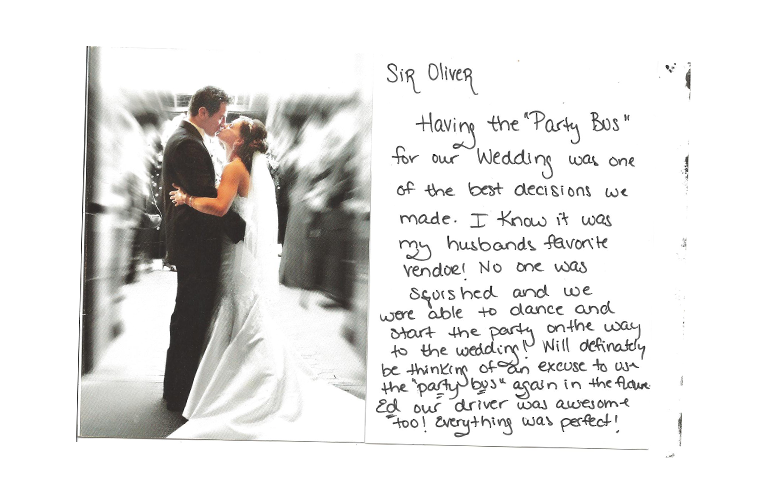 Sir Oliver
Having the "Party Bus"
for our Wedding was one
of the best decisions we
made. I know it was
my husbands favorite
vendoe! No one was
squished and we
were able to dance and
start the party on the way
to the wedding! Will definately
be thinking of an excuse to use
the "party bus" again in the future
Ed our driver was awesome
too! Everything was perfect!